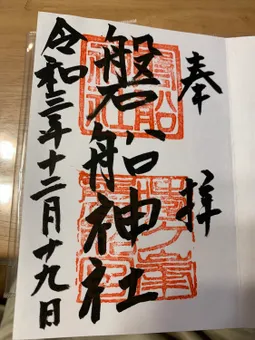 奉拝
磐船神社
令和三年十二月十九日